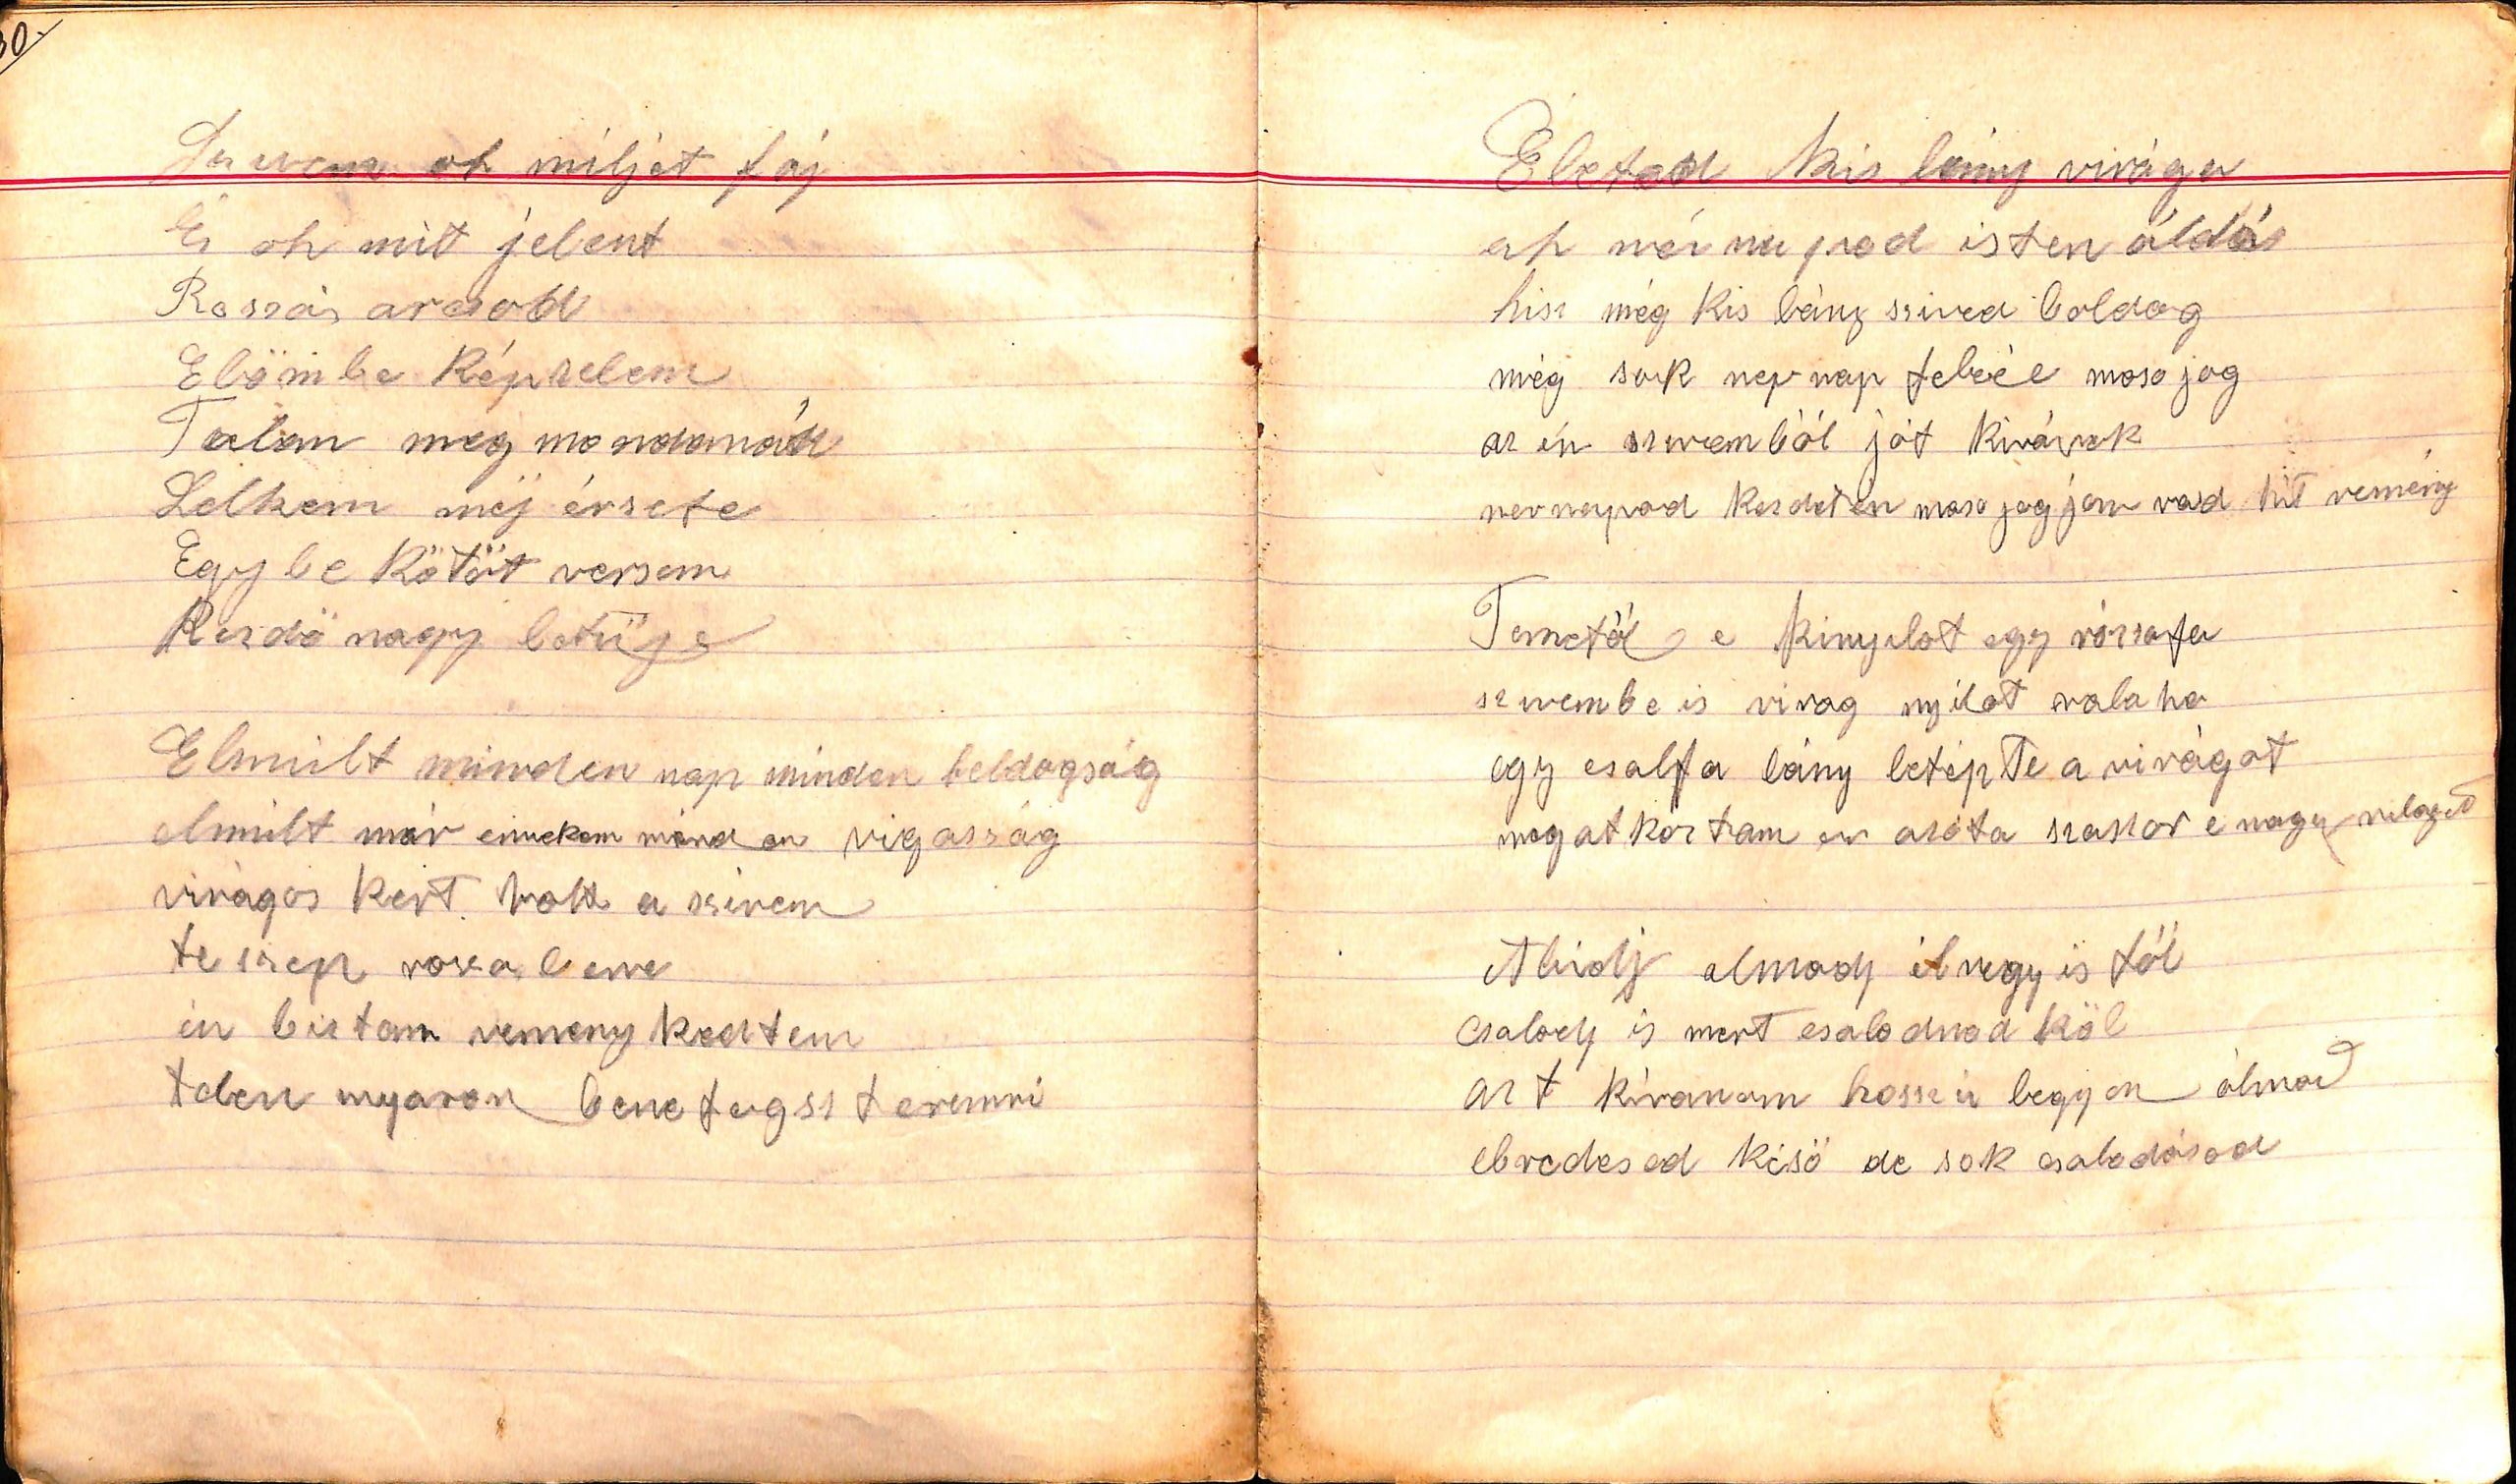 30.
Szivem oh miljet fáj
És oh mit jelent
Rószás arczod
Elömbe képzelem
Talan meg mondanád
Lelkem méj érzete
Egy be kötöt versem
Kezdö nagy betüje
Elmúlt minden nap minden boldogság
elmúlt már ennekem minden vigasság
virágos kert volt a szivem
te szep roza benne
én biztam remeny kedtem
telen nyaron bene fogsz teremni
Életed kis lány virága
ah név napod isten áldás
hisz még kis lány szived boldog
még sok nev nap feléd mosojog
az én szivemböl jót kivánok
nev napod kezdetén mosojogjon rád hit remény
Temetöl e kinyilot egy rózsafa
szivembe is virag nyilot valaha
egy csalfa lány letépte a virágot
meg atkoztam en azóta szaszor e nagy világot
Aludj almodj ék vegyis föl
csalodj is mert csalodnod köl
azt kivanom hosszú legyen álmod
ebredesed késö de sok csalodásod